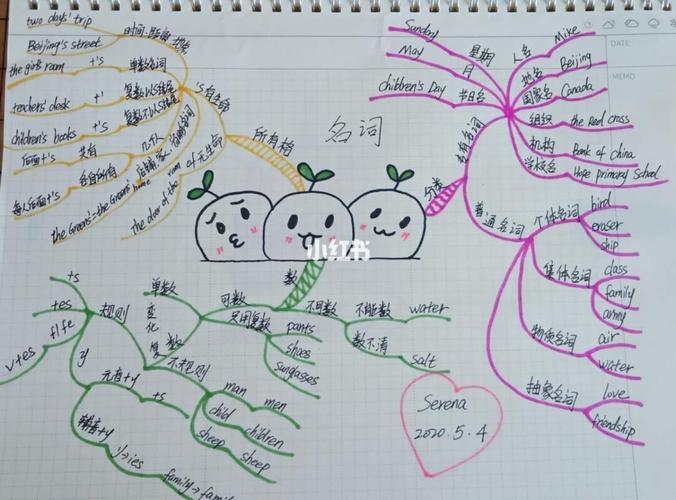 名词
小红书
所有格
's有生命
时间.距离
two days' trip
Beijing's street
单数名词
+'s
the girl's room
复数以s结尾
+'
teachers' desk
复数不以s结尾
+'s
children's books
几个人
共有
后面+'s
各自所有
每人后面+'s
the Greens'=the Greens' home
of 无生命
the door of the room
分类
专有名词
星期
Sunday
月
May
节日名
children's Day
人名
Mike
地名
Beijing
国家名
Canada
组织
the Red cross
机构
Bank of china
学校名
Hope primary School
普通名词
个体名词
bird
eraser
ship
集体名词
class
family
army
物质名词
air
water
抽象名词
love
friendship
数
可数
单数
变化
复数
规则
+s
+es
f/fe
v+es
y
元音+y
+s
辅音+y
y→ies
family→
不规则
man
men
child
children
sheep
sheep
只用复数
pants
shoes
sunglasses
不可数
不能数
water
数不清
salt
Serena
2020.5.4
DATE
MEMO